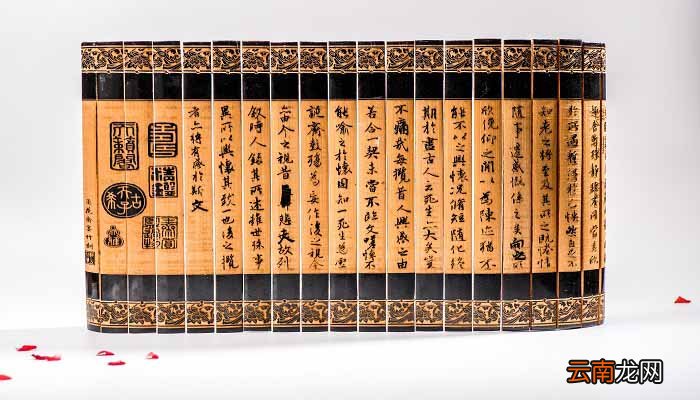 趣舍萬殊靜躁不同當其欣
於所遇暫得於己快然自足不
知老之將至及其所之既惓情
隨事遷感慨係之矣向之所
欣俛仰之間以為陳迹猶不
能不以之興懷況脩短隨化終
期於盡古人云死生亦大矣豈
不痛哉每攬昔人興感之由
若合一契未嘗不臨文嗟悼不
能喻之於懷固知一死生為虛
誕齊彭殤為妄作後之視今
亦由今之視昔悲夫故列
叙時人錄其所述雖世殊事
異所以興懷其致一也後之攬
者亦將有感於斯文
云南龙网